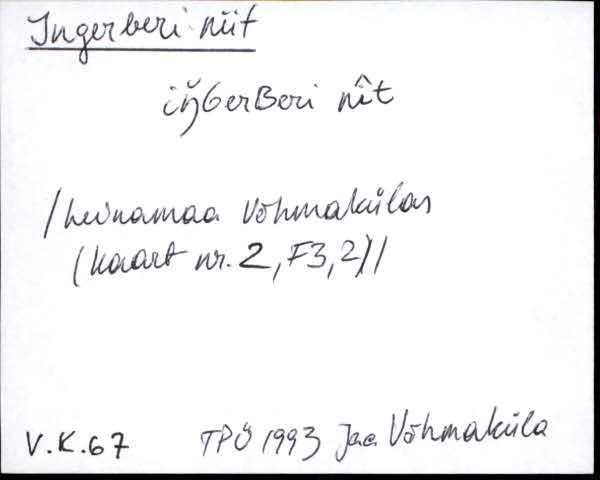 Ingerberi niit
iŋ̆GerBeri nît
/heinamaa Võhmakülas
(kaart nr. 2, F3, 2)/
V.K.67 TPÜ 1993 Jaa Võhmaküla